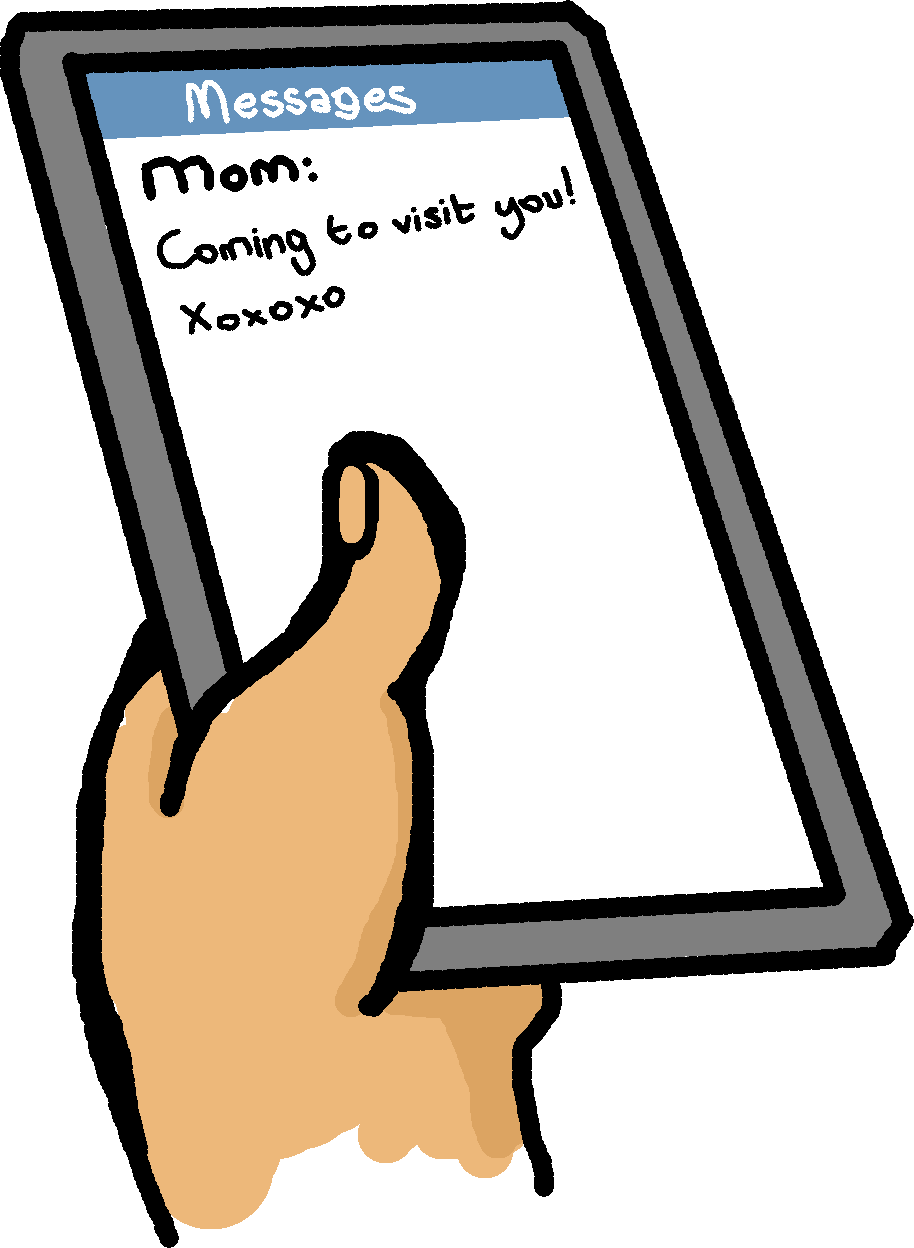 Messages
Mom:
Coming to visit you!
Xoxoxo